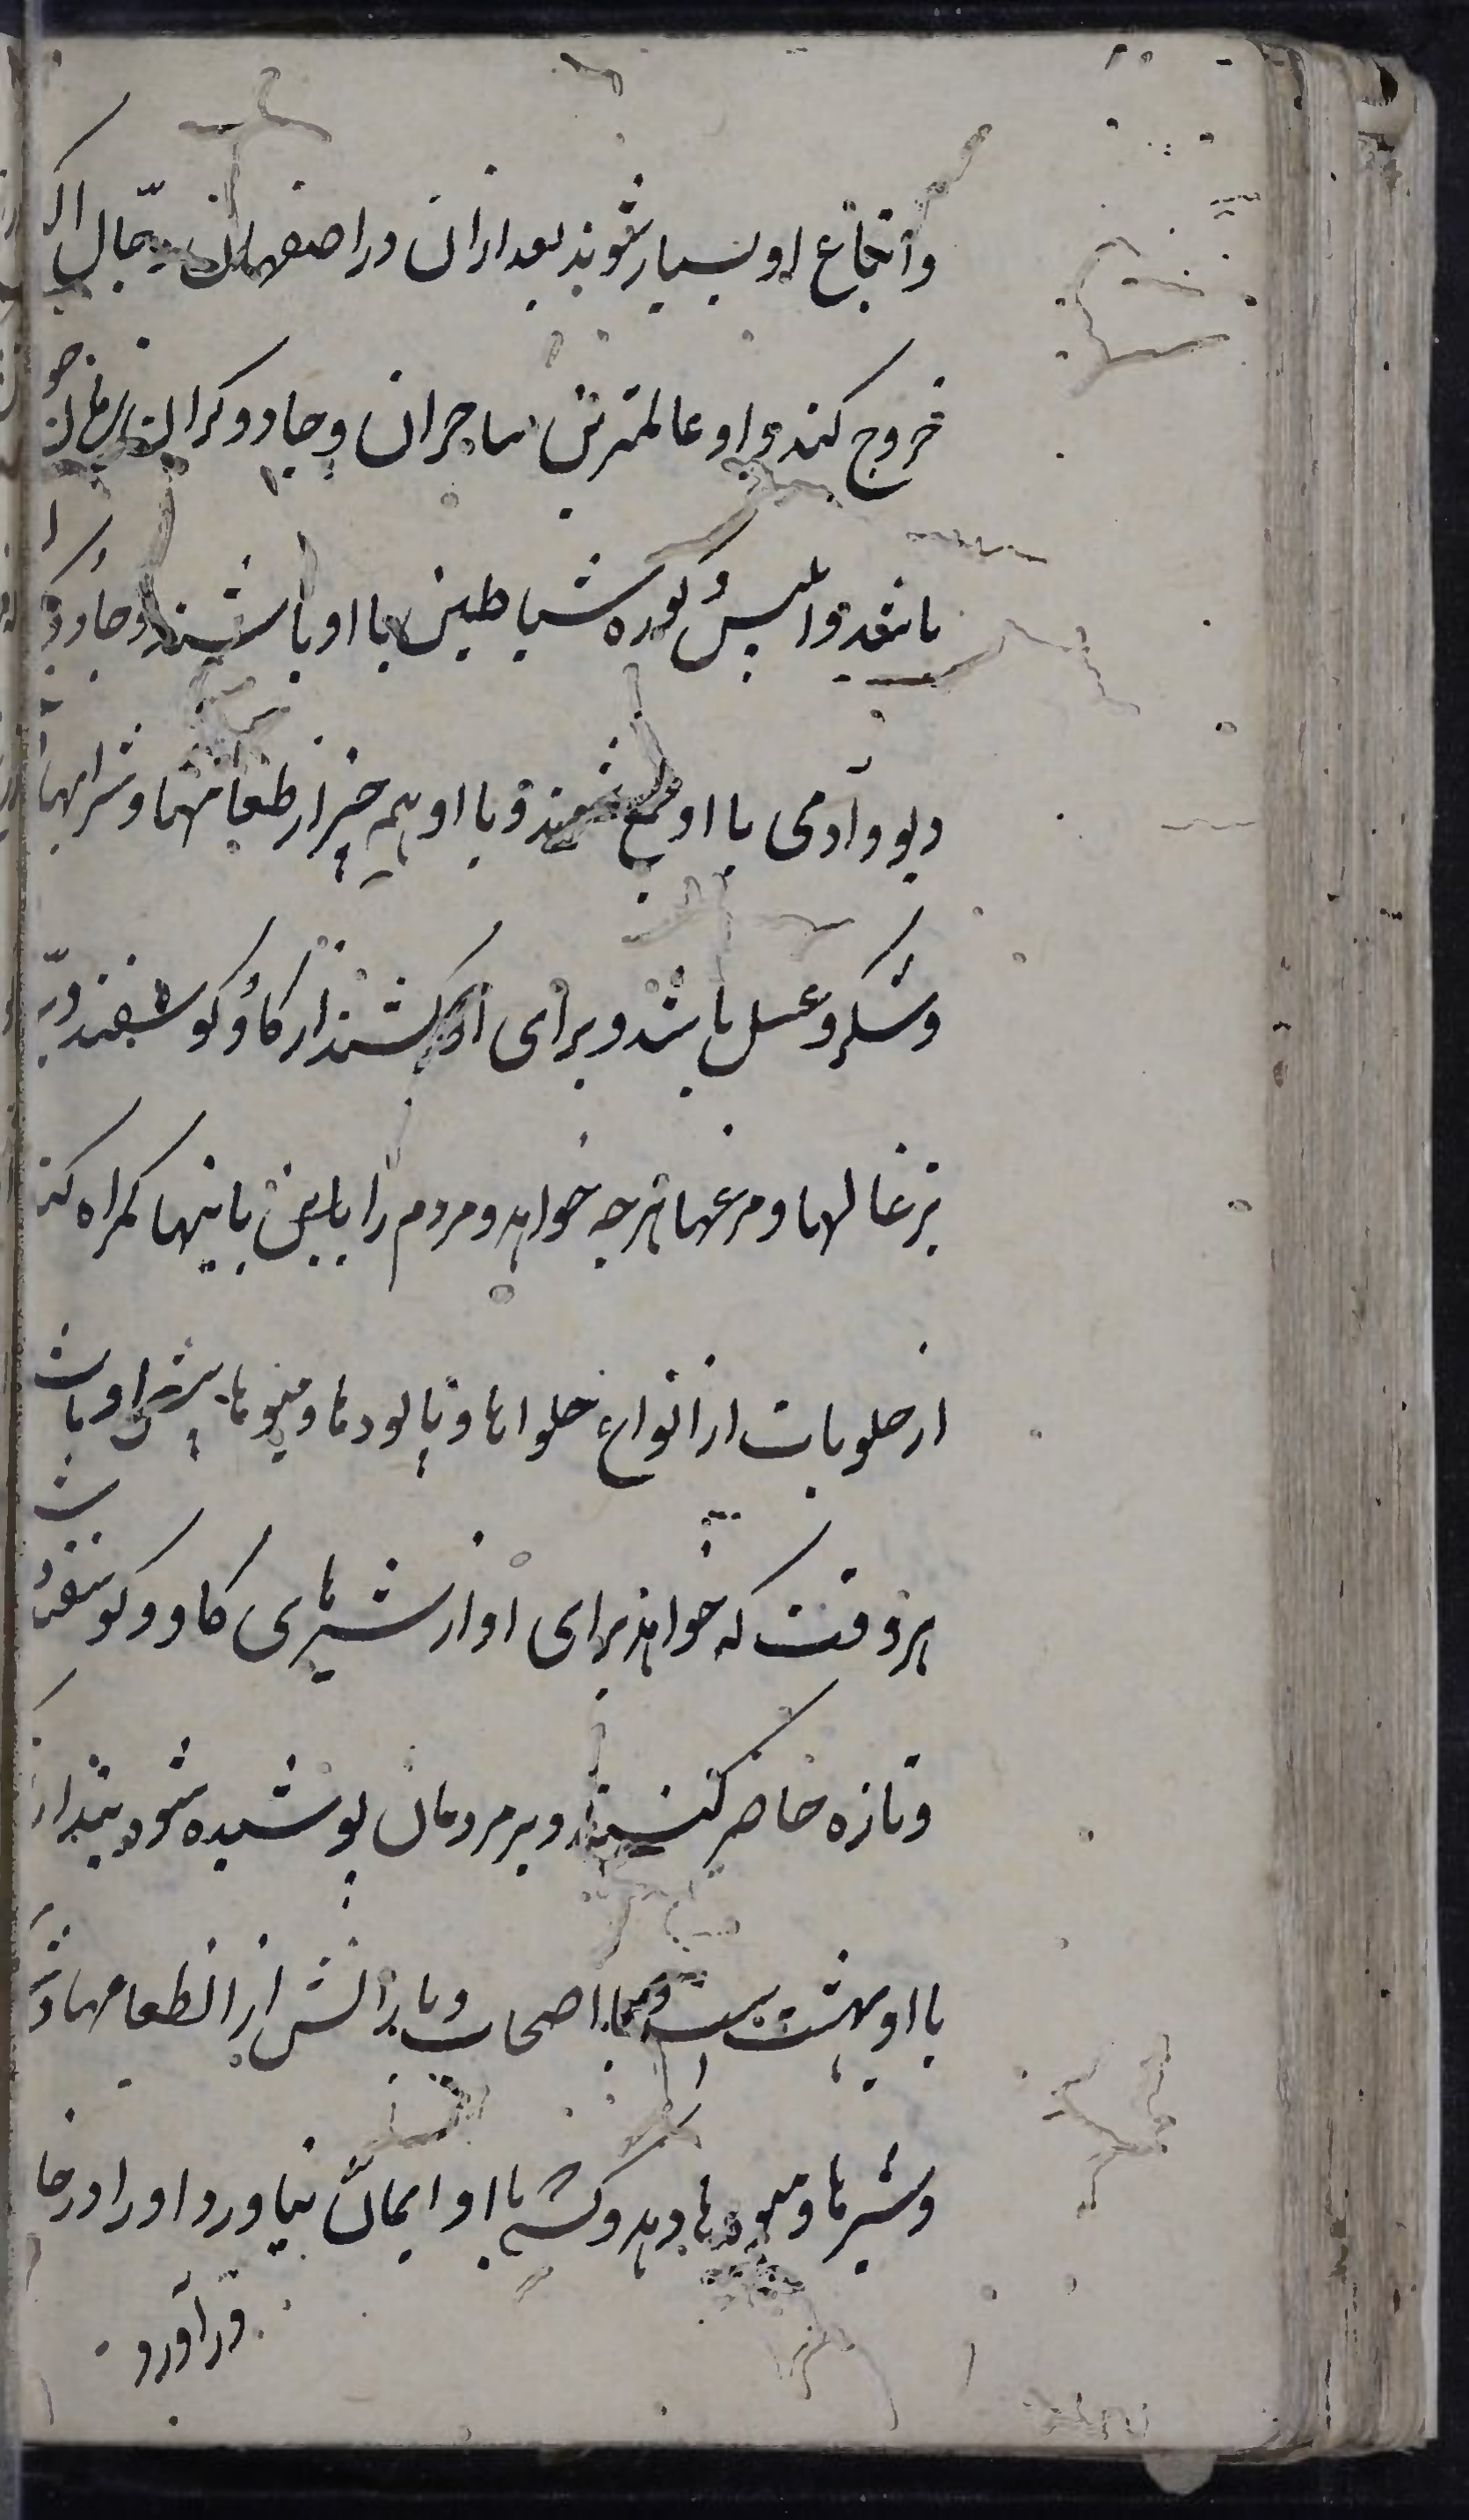 و اتباع او بسیار شوند بعد از ان در اصفهان دجّال
خروج کند و او عالمترین ساحران و جادوگران
باشد و ابلیس و گروه شیاطین با او باشند و جادو
دیو و آدمی با او جمع شوند و با او همه چیز از طعامها و شرابها
و شکر و عسل باشد و برای او کشند از گاو و گوسفند و
بزغالها و مرغها هرچه خواهد و مردم را باینها گمراه کند
از حلویات از انواع حلواها و پالودها و میوها پیش او باشد
هر وقت که خواهند برای او از شیرهای گاو و گوسفند
و تازه حاضر کنند و بر مردمان پوشیده شود پندارند
با او بهشت است و اصحاب و یارانش از ان طعامها و
و شیرها و میوها دهد و کسی که با او ایمان نیاورد او را در خا
در آورد